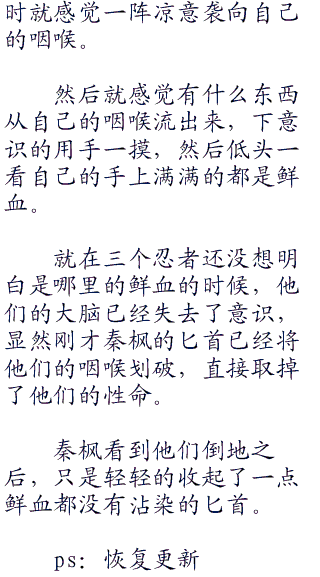 时就感觉一阵凉意袭向自己
的咽喉。
然后就感觉有什么东西
从自己的咽喉流出来，下意
识的用手一摸，然后低头一
看自己的手上满满的都是鲜
血。
就在三个忍者还没想明
白是哪里的鲜血的时候，他
们的大脑已经失去了意识，
显然刚才秦枫的匕首已经将
他们的咽喉划破，直接取掉
了他们的性命。
秦枫看到他们倒地之
后，只是轻轻的收起了一点
鲜血都没有沾染的匕首。
ps：恢复更新